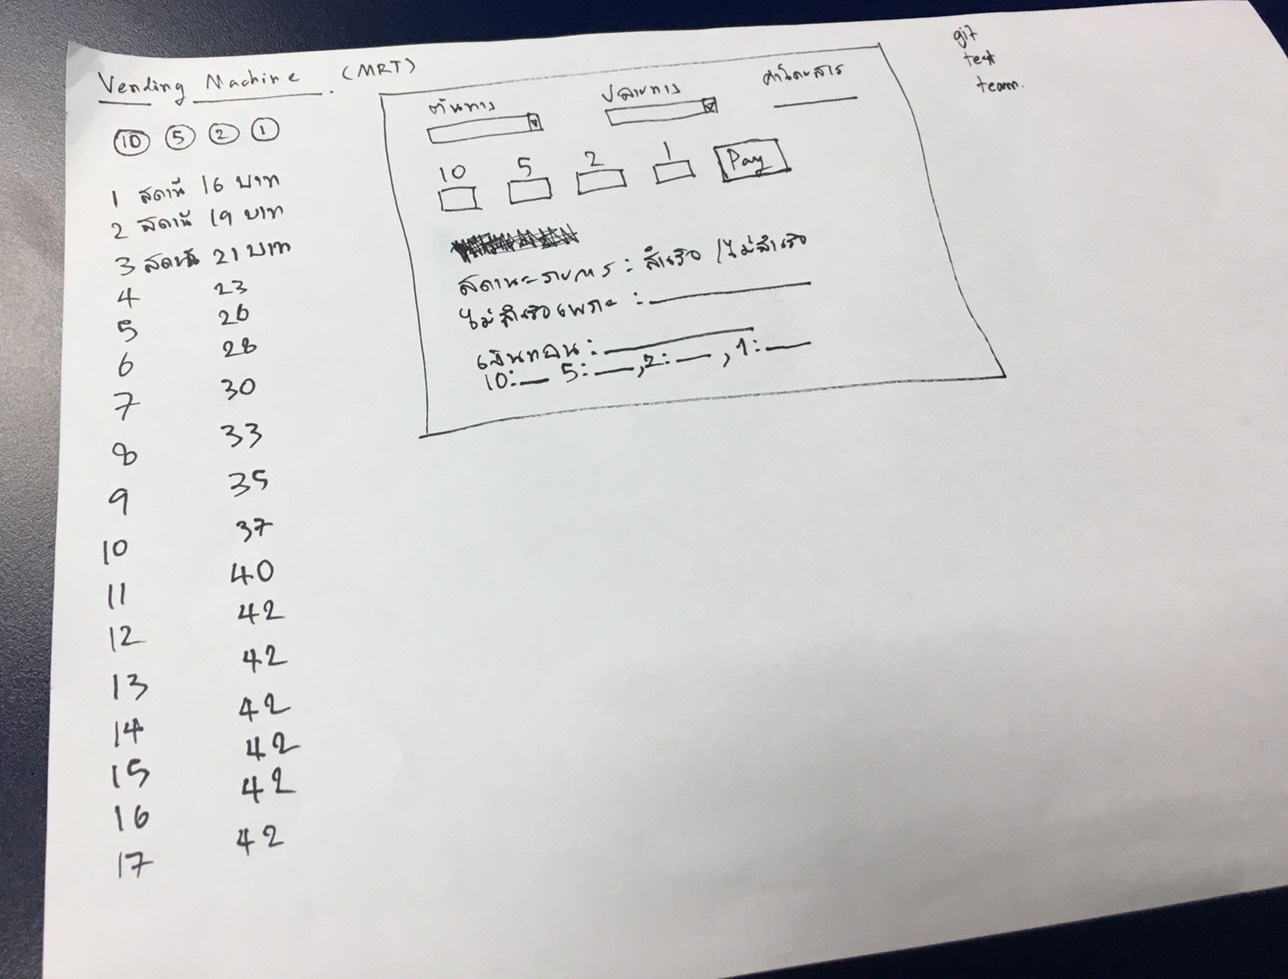 Vending Machine (MRT)
10 5 2 1
1 สถานี 16 บาท
2 สถานี 19 บาท
3 สถานี 21 บาท
4 23
5 26
6 28
7 30
8 33
9 35
10 37
11 40
12 42
13 42
14 42
15 42
16 42
17 42
ต้นทาง ปลายทาง ค่าโดยสาร
10 5 2 1 Pay
สถานะรายการ : สำเร็จ / ไม่สำเร็จ
ไม่สำเร็จเพราะ :
เงินทอน :
10: 5: , 2: , 1:
git
test
team.